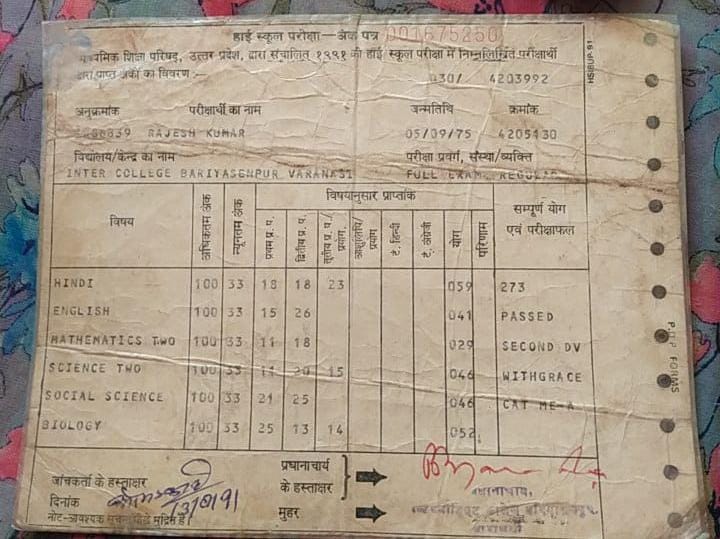 हाई स्कूल परीक्षा – अंक पत्र 001675250
माध्यमिक शिक्षा परिषद्, उत्तर प्रदेश, द्वारा संचालित १९९१ की हाई स्कूल परीक्षा में निम्नलिखित परीक्षार्थी
द्वारा प्राप्त अंकों का विवरण :—
030/ 4203992
अनुक्रमांक परीक्षार्थी का नाम जन्मतिथि क्रमांक
RAJESH KUMAR 05/09/75 4205430
विद्यालय/केन्द्र का नाम परीक्षा प्रवर्ग, संस्था/व्यक्ति
INTER COLLEGE BARIYASENPUR VARANASI FULL EXAM. REGULAR
विषय अधिकतम अंक न्यूनतम अंक विषयानुसार प्राप्तांक सम्पूर्ण योग
एवं परीक्षाफल
प्रथम प्र. प. द्वितीय प्र. प. तृतीय प्र. प./प्रयोग. टं. हिन्दी टं. अंग्रेजी योग परिणाम
HINDI 100 33 18 18 23 059 273
ENGLISH 100 33 15 26 041 PASSED
MATHEMATICS TWO 100 33 11 18 029 SECOND DV
SCIENCE TWO 100 33 11 20 15 046 WITHGRACE
SOCIAL SCIENCE 100 33 21 25 046 CAT ME-A
BIOLOGY 100 33 25 13 14 052
जांचकर्ता के हस्ताक्षर
प्रधानाचार्य
के हस्ताक्षर
दिनांक
मुहर
प्रधानाचार्य,
वाराणसी
HSIBUP 91
P.U.P FORMS